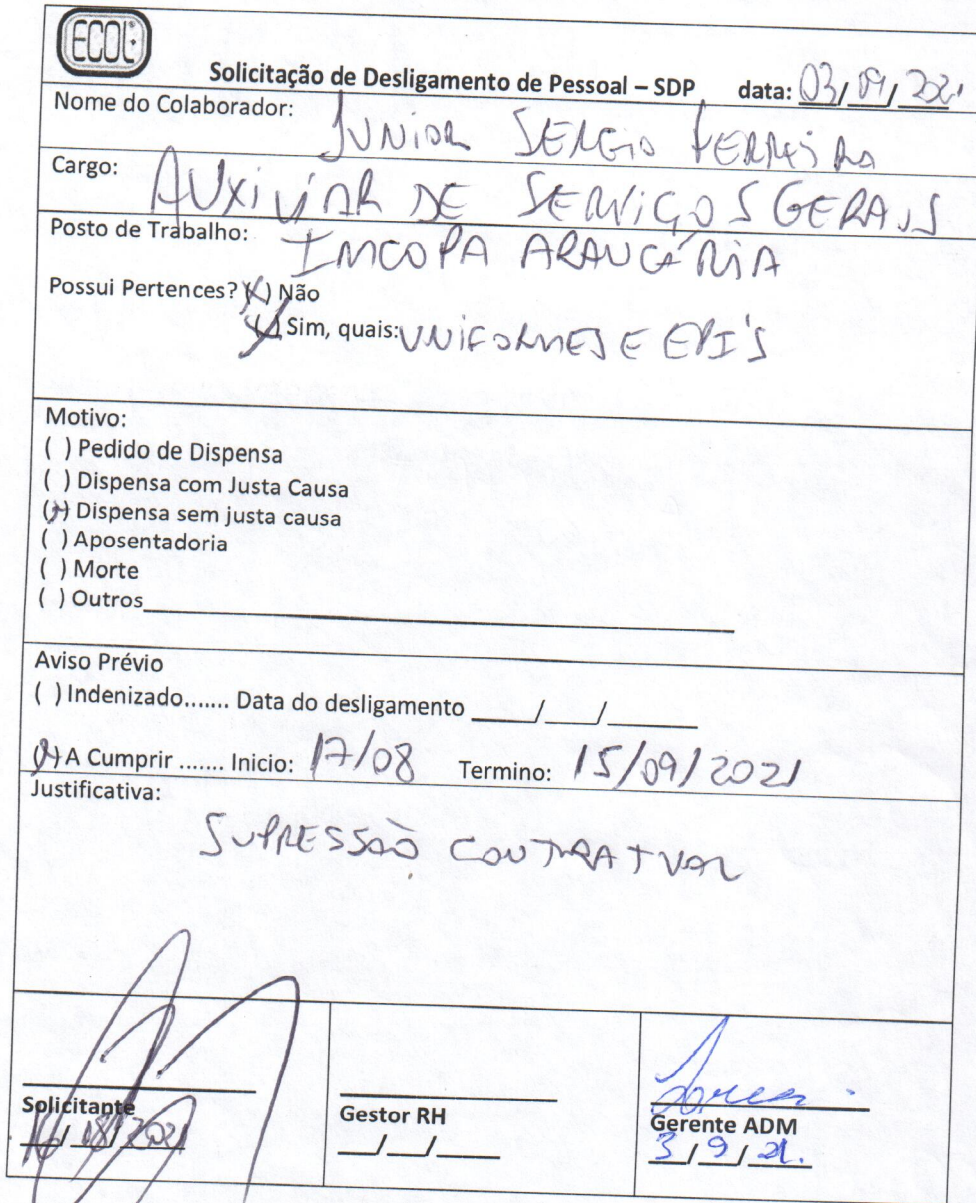 ECOL
Solicitação de Desligamento de Pessoal – SDP data: 03/09/2021
Nome do Colaborador: JUNIOR SERGIO FERREIRA
Cargo: AUXILIAR DE SERVIÇOS GERAIS
Posto de Trabalho: IMCOPA ARAUCÁRIA
Possui Pertences? (X) Não
(X) Sim, quais: UNIFORMES E EPI'S
Motivo:
( ) Pedido de Dispensa
( ) Dispensa com Justa Causa
(X) Dispensa sem justa causa
( ) Aposentadoria
( ) Morte
( ) Outros
Aviso Prévio
( ) Indenizado....... Data do desligamento ___/___/___
(X) A Cumprir ....... Inicio: 17/08 Termino: 15/09/2021
Justificativa:
SUPRESSÃO CONTRATUAL
Solicitante
16/08/2021
Gestor RH
__/__/__
Gerente ADM
3/9/21.